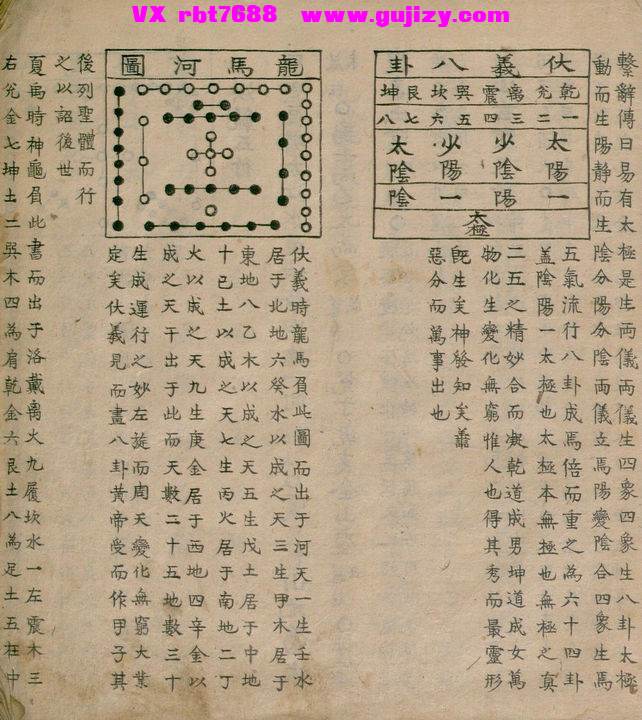 VX rbt7688 www.gujizy.com
繫辭傳曰易有太極是生両儀両儀生四象四象生八卦太極
動而生陽静而生陰分陽分陰両儀立焉陽變陰合四象生焉
伏羲八卦
乾兊离震巽坎艮坤
一二三四五六七八
太陽 少陰 少陽 太陰
一陽一陰
太極
五氣流行八卦成焉倍而重之為六十四卦
蓋陰陽一太極也太極本無極也無極之真
二五之精妙合而凝乾道成男坤道成女萬
物化生變化無窮惟人也得其秀而最靈形
既生矣神發知矣善
惡分而萬事出也
龍馬河圖
伏羲時龍馬負此圖而出于河天一生壬水
居于北地六癸水以成之天三生甲木居于
東地八乙木以成之天五生戊土居于中地
十己土以成之天七生丙火居于南地二丁
火以成之天九生庚金居于西地四辛金以
成之天干出于此而天數二十五地數三十
生成運行之妙左旋而周天變化無窮大業
定矣伏羲見而畫八卦黃帝受而作甲子其
後列聖體而行
之以詔後世
夏禹時神龜負此書而出于洛戴离火九履坎水一左震木三
右兊金七坤土二巽木四為肩乾金六艮土八為足土五在中